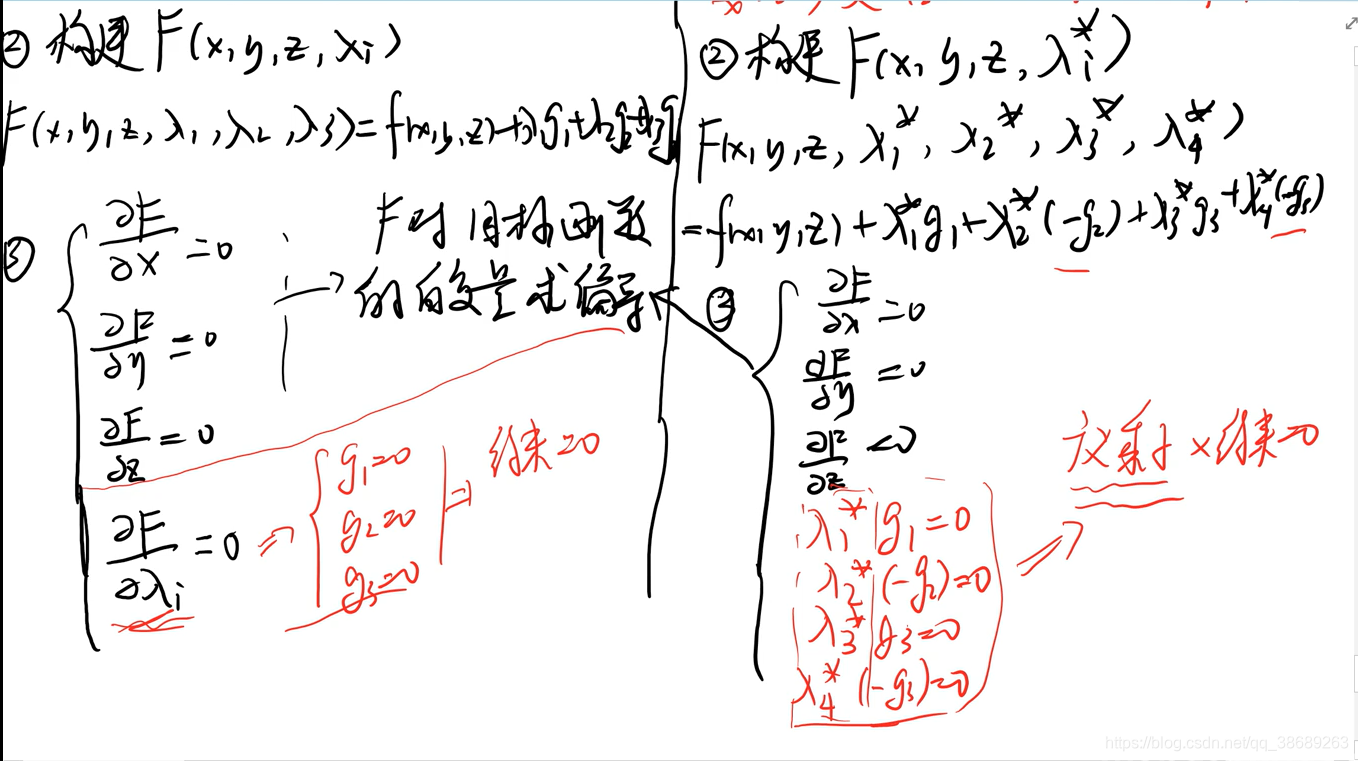 ② 构建 F(x,y,z,λi)
F(x,y,z,λ1,λ2,λ3)=f(x,y,z)+λ1g1+λ2g2+λ3g3
③
∂F/∂x=0
∂F/∂y=0
∂F/∂z=0
∂F/∂λi=0
F对目标函数
的自变量求偏导
=> g1=0
g2=0
g3=0
=> 约束=0
② 构建 F(x,y,z,λi*)
F(x,y,z,λ1*,λ2*,λ3*,λ4*)
=f(x,y,z)+λ1*g1+λ2*(-g2)+λ3*g3+λ4*(-g3)
③
∂F/∂x=0
∂F/∂y=0
∂F/∂z=0
λ1*g1=0
λ2*(-g2)=0
λ3*g3=0
λ4*(-g3)=0
=> 乘子×约束=0
https://blog.csdn.net/qq_38689263